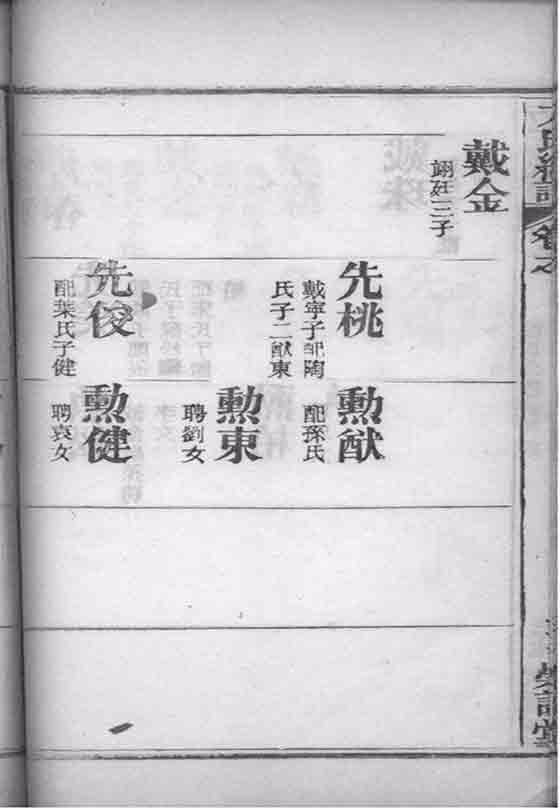 卷之
戴金
翊廷三子
先桃
戴寧子配陶
氏子二猷東
先佼
配葉氏子健
勳猷
配孫氏
勳東
聘劉女
勳健
聘袁女